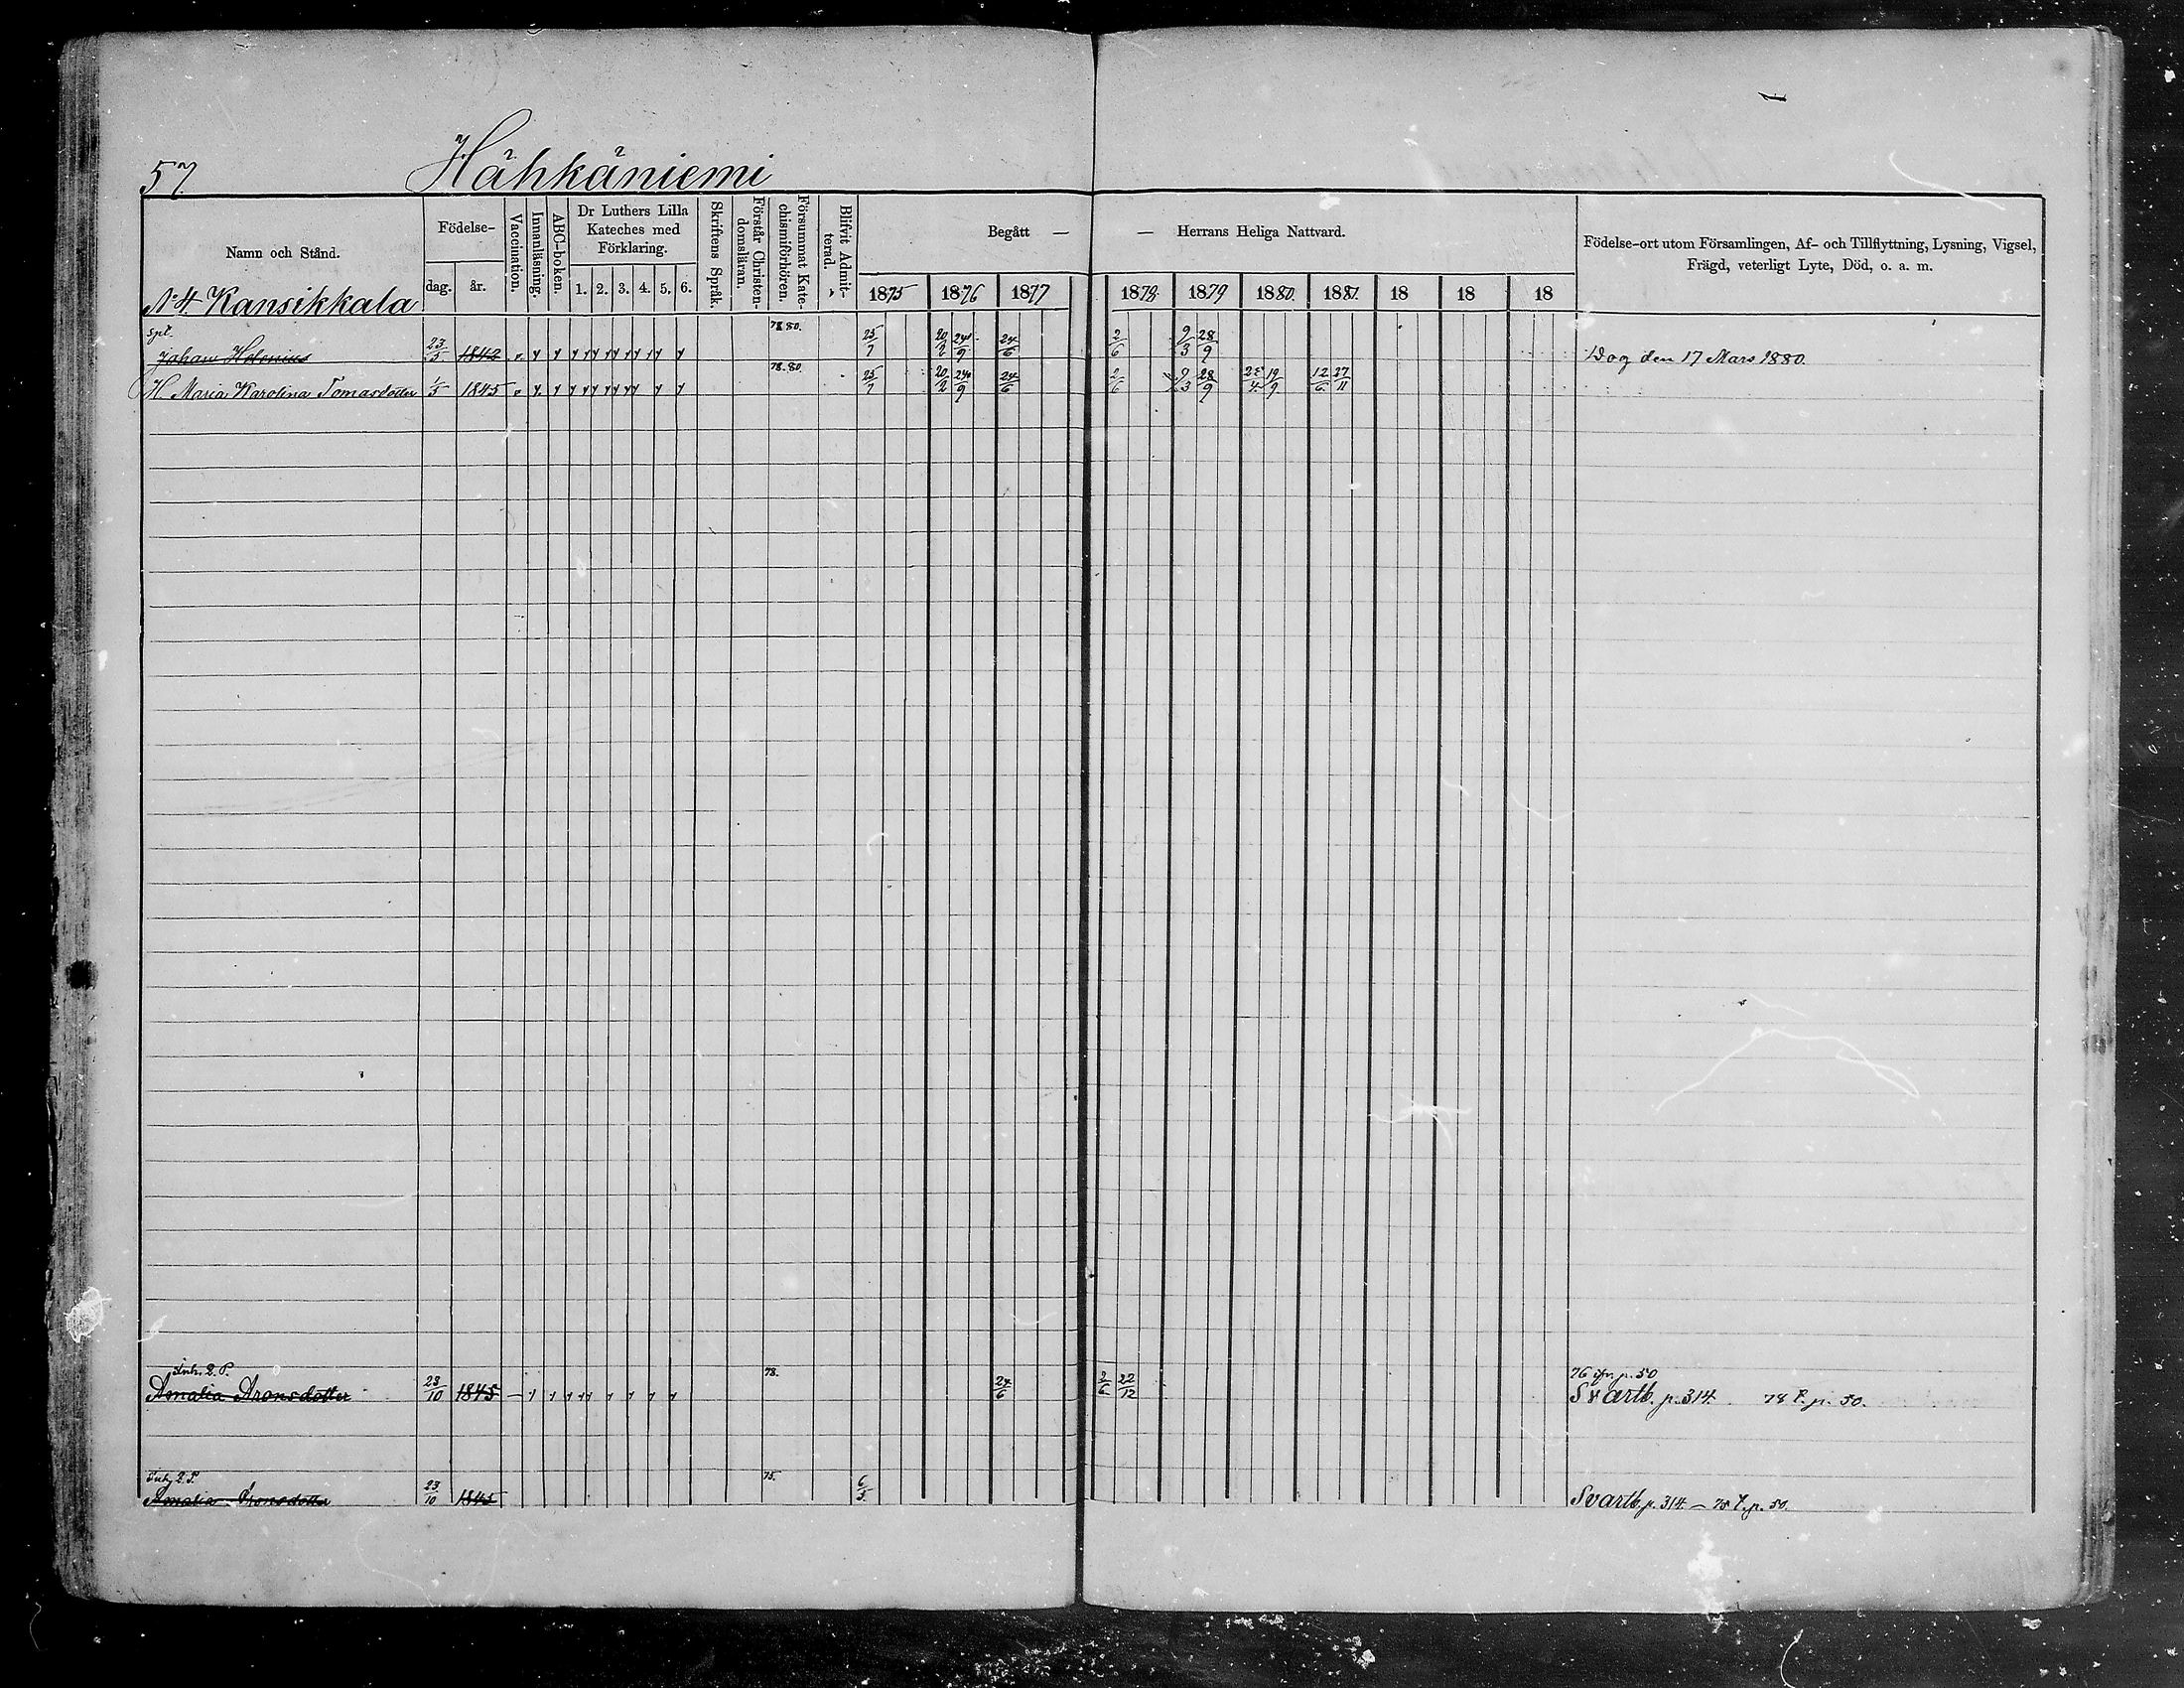 57. Hähkäniemi
Namn och Stånd.
Födelse-
dag. år.
Vaccination.
Innanläsning.
ABC-boken.
Dr Luthers Lilla
Kateches med
Förklaring.
1. 2. 3. 4. 5. 6.
Skriftens Språk.
Förstår Christen-
domsläran.
Försummat Kate-
chismiförhören.
Blifvit Admit-
terad.
Begått — — Herrans Heliga Nattvard.
1875 1876 1877 1878. 1879 1880. 1881. 18 18 18
Födelse-ort utom Församlingen, Af- och Tillflyttning, Lysning, Vigsel,
Frägd, veterligt Lyte, Död, o. a. m.
No 4. Kansikkala
Spl. 78 80.
Johan Helenius 23/5 1842 25/7 20/2 24/9 24/6 2/6 9/3 28/9 Dog den 17 Mars 1880.
78. 80.
H. Maria Karolina Tomasdotter 1/5 1845 25/7 20/2 24/9 24/6 2/6 9/3 28/9 19/9 12/6 27/11
Inh. 78. 76 p. 50
Amalia Aronsdotter 23/10 1845 24/6 2/6 22/12 Svartb. p. 314. 78 p. 50.
75.
Amalia Aronsdotter 23/10 1845 6/5 Svartb. p. 314. p. 50.